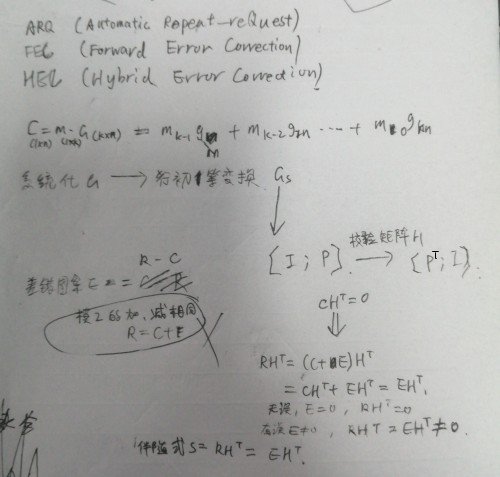 ARQ (Automatic Repeat-reQuest)
FEC (Forward Error Correction)
HEC (Hybrid Error Correction)
C = m · G (k×n) = m k-1 g 1n + m k-2 g 2n ···· + m 0 g kn
(1×n) (1×k)
系统化 G → 行初等变换 Gs
[I ; P] → 校验矩阵 H [Pᵀ ; I]
差错图案 E = R - C
模2的加、减相同
R = C + E
CHᵀ = 0
RHᵀ = (C + E)Hᵀ
= CHᵀ + EHᵀ = EHᵀ.
无误, E = 0, RHᵀ = 0
有误 E ≠ 0, RHᵀ = EHᵀ ≠ 0.
伴随式 S = RHᵀ = EHᵀ.